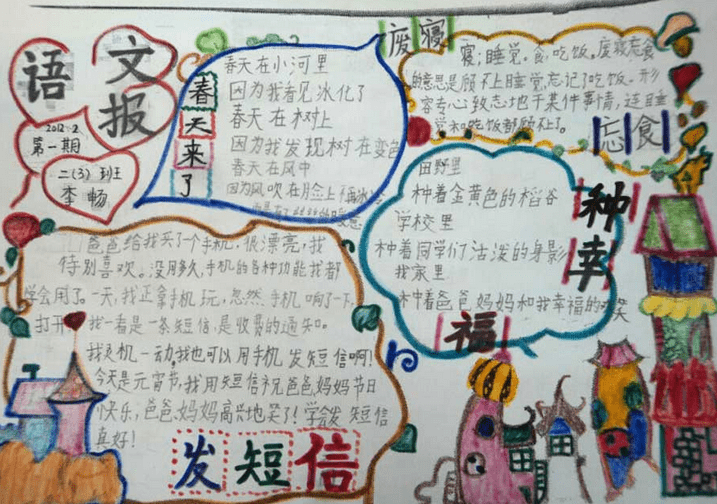 语
文
报
2012.2
第一期
二(3)班
李畅
春天来了
春天在小河里
因为我看见冰化了
春天在树上
因为我发现树在变色
春天在风中
因为风吹在月脸上不再冰冷
废寝忘食
寝;睡觉。食,吃饭。废寝忘食
的意思是顾不上睡觉,忘记了吃饭。形
容专心致志地干某件事情,连睡
觉和吃饭都顾不上了。
种幸福
田野里
种着金黄色的稻谷
学校里
种着同学们活泼的身影
我家里
种着爸爸妈妈和我幸福的
笑
爸爸给我买了一个手机,很漂亮,我
特别喜欢。没用多久,手机的各种功能我都
学会用了。一天,我正拿手机玩,忽然,手机响了一下,
打开我一看是一条短信,是收费的通知。
我灵机一动,我也可以用手机发短信啊!
今天是元宵节,我用短信祝爸爸妈妈节日
快乐,爸爸妈妈高兴地笑了!学会发短信
真好!
发短信